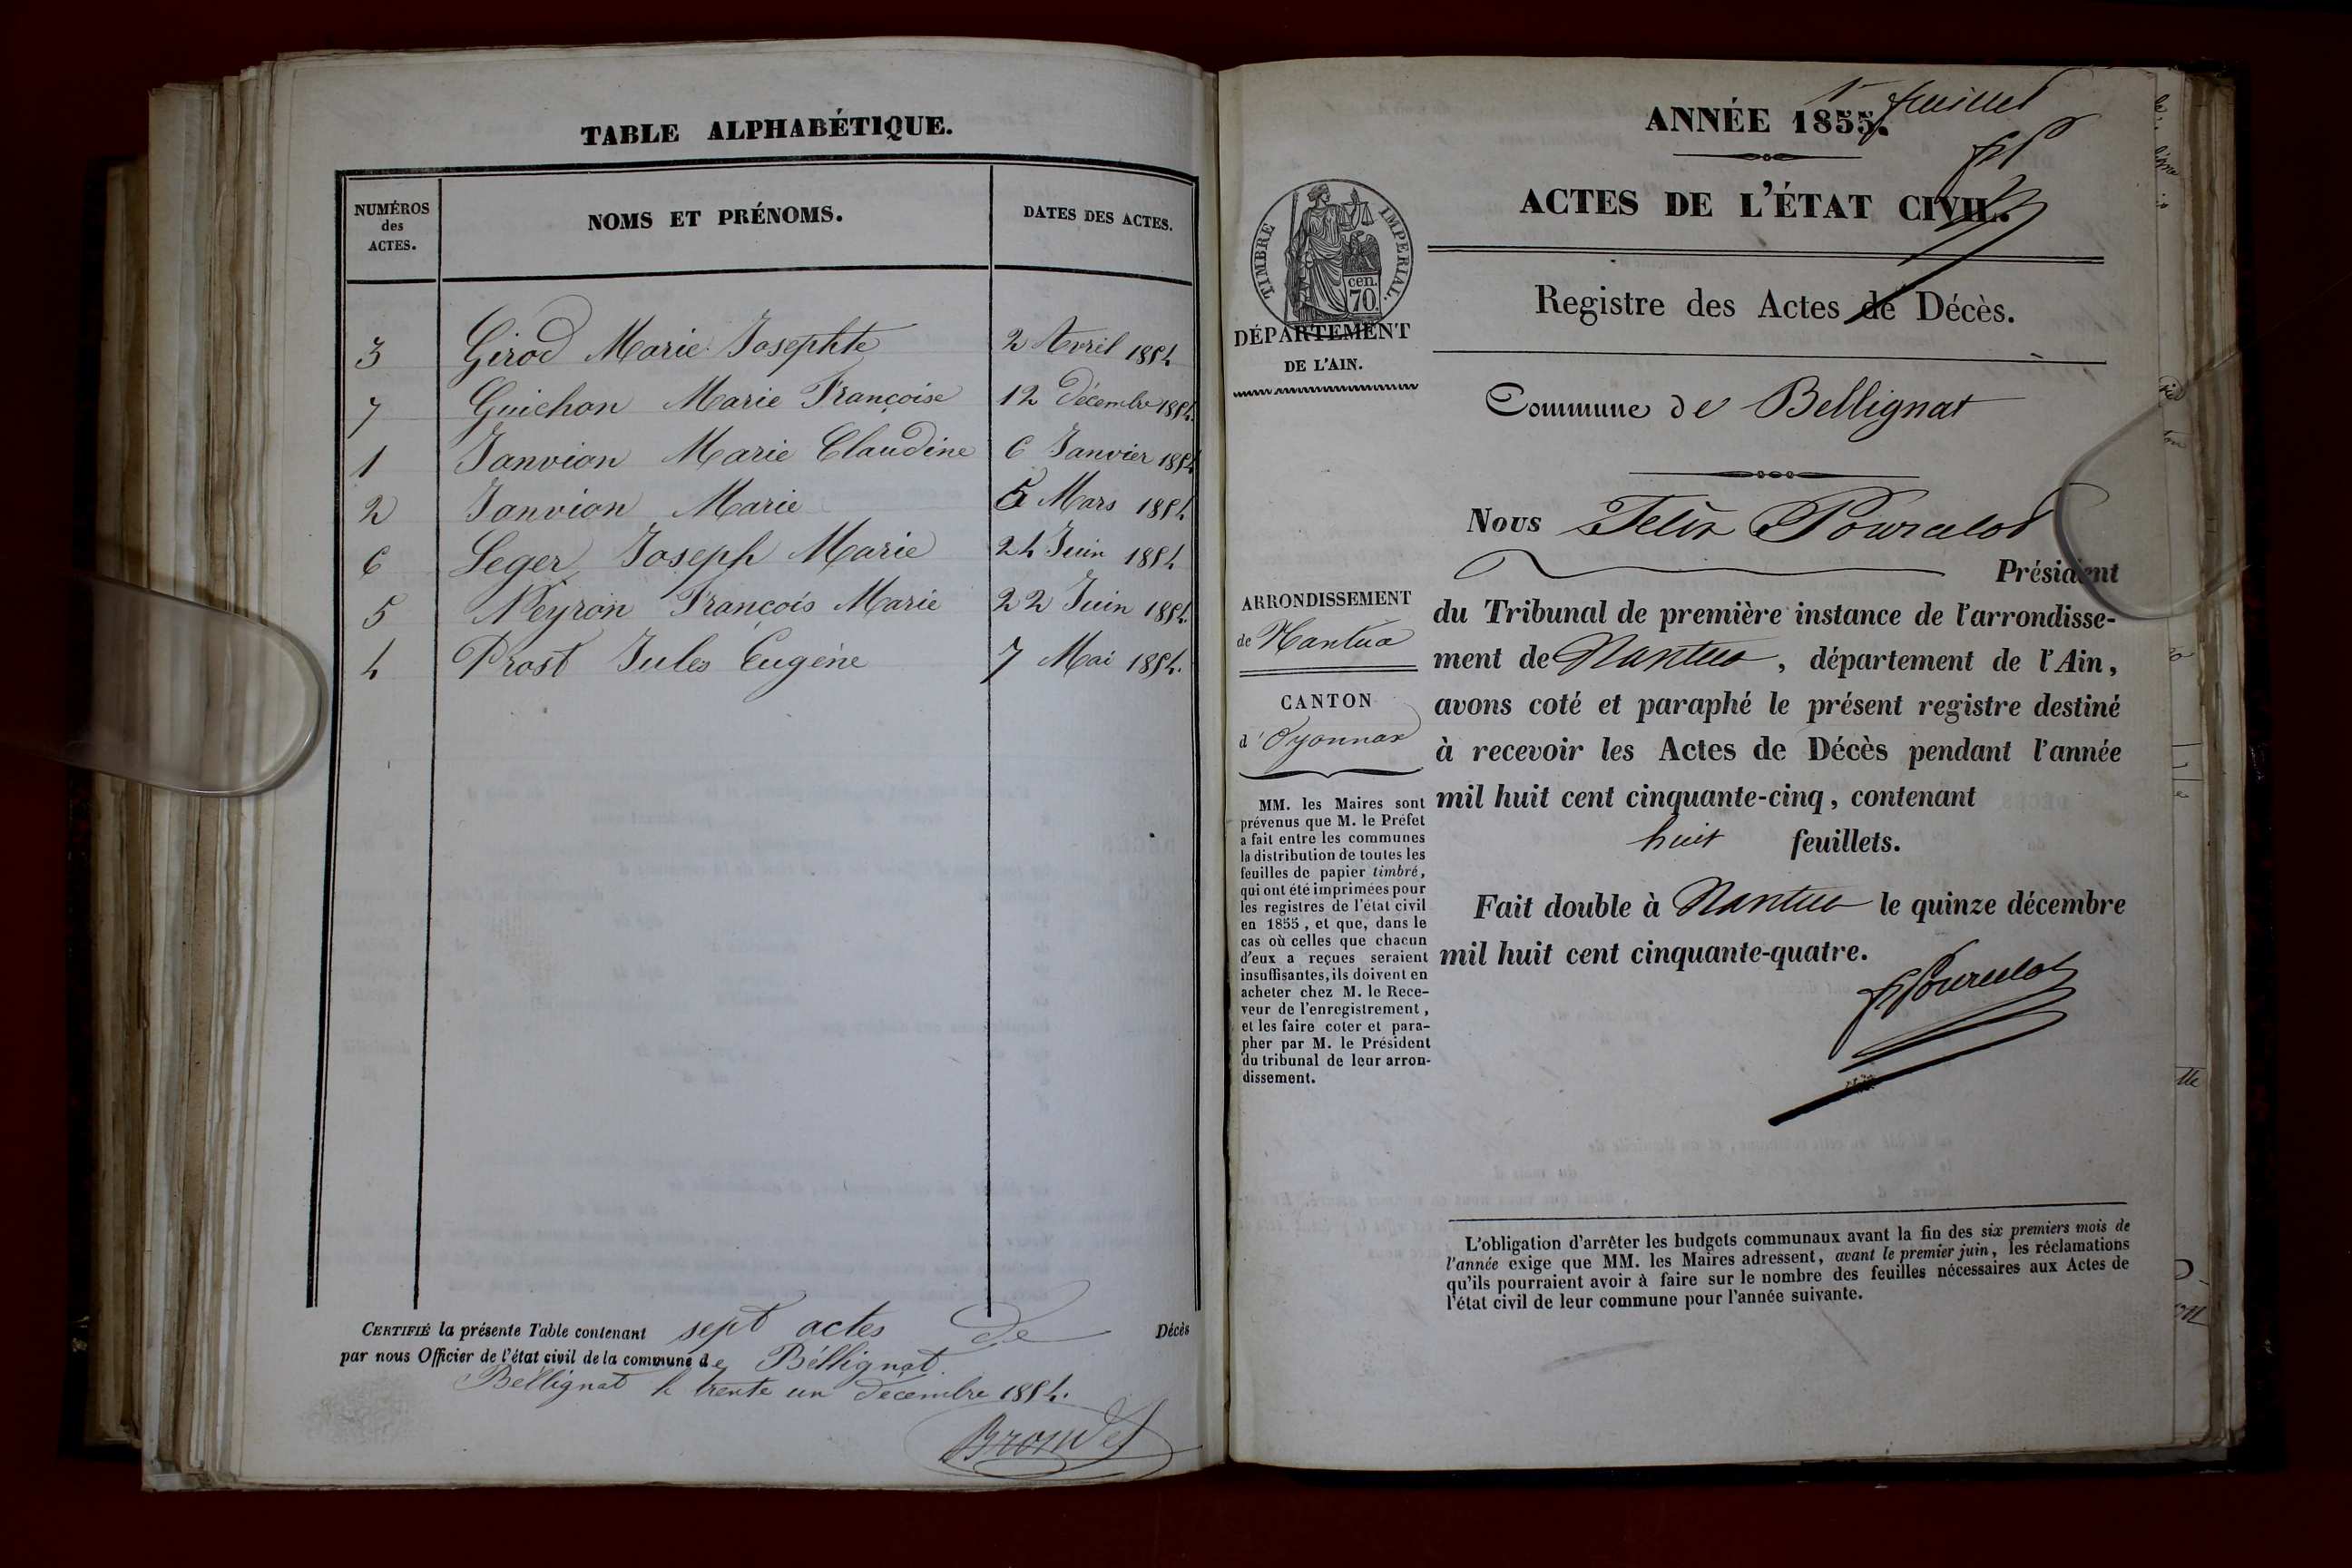 TABLE ALPHABÉTIQUE.
NUMÉROS
des
ACTES.
NOMS ET PRÉNOMS.
DATES DES ACTES.
3 Girod Marie Josephte 2 Avril 1854
7 Guichon Marie Françoise 12 Décembre 1854.
1 Janvion Marie Claudine 6 Janvier 1854
2 Janvion Marie 5 Mars 1854
6 Leger Joseph Marie 24 Juin 1854
5 Neyron François Marie 22 Juin 1854.
4 Prost Jules Eugéne 7 Mai 1854.
CERTIFIÉ la présente Table contenant sept actes de Décès
par nous Officier de l'état civil de la commune de Béllignat
Béllignat le trente un décembre 1854.
1er feuillet
ANNÉE 1855.
ACTES DE L'ÉTAT CIVIL.
Registre des Actes de Décès.
TIMBRE IMPERIAL.
cen.
70
DÉPARTEMENT
DE L'AIN.
Commune de Bellignat
ARRONDISSEMENT
de Nantua
CANTON
d'Oyonnax
MM. les Maires sont
prévenus que M. le Préfet
a fait entre les communes
la distribution de toutes les
feuilles de papier timbré,
qui ont été imprimées pour
les registres de l'état civil
en 1855, et que, dans le
cas où celles que chacun
d'eux a reçues seraient
insuffisantes, ils doivent en
acheter chez M. le Rece-
veur de l'enregistrement,
et les faire coter et para-
pher par M. le Président
du tribunal de leur arron-
dissement.
Nous Felix Pourcelot
Président
du Tribunal de première instance de l'arrondisse-
ment de Nantua, département de l'Ain,
avons coté et paraphé le présent registre destiné
à recevoir les Actes de Décès pendant l'année
mil huit cent cinquante-cinq, contenant
huit feuillets.
Fait double à Nantua le quinze décembre
mil huit cent cinquante-quatre.
L'obligation d'arrêter les budgets communaux avant la fin des six premiers mois de
l'année exige que MM. les Maires adressent, avant le premier juin, les réclamations
qu'ils pourraient avoir à faire sur le nombre des feuilles nécessaires aux Actes de
l'état civil de leur commune pour l'année suivante.